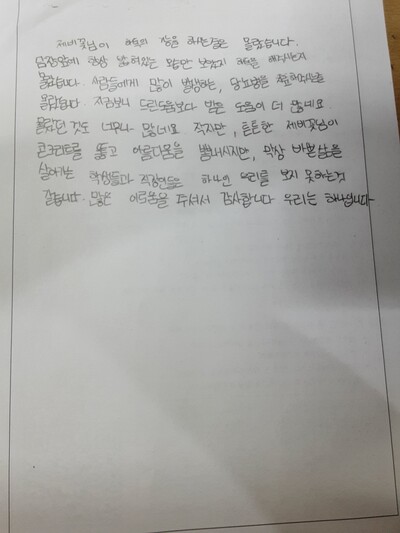 제비꽃님이 하트의 잎을 하신줄은 몰랐습니다.
담장앞에 항상 밟혀있는 모습만 보았지 하트를 하시는지
몰랐습니다. 사람들에게 많이 발생하는, 당뇨병을 치료해주시는줄
몰랐습니다. 지금보니 드린도움보다 받은 도움이 더 많네요.
몰랐던 것도 너무나 많네요. 작지만, 튼튼한 제비꽃님이
콘크리트를 뚫고 아름다움을 뽐내시지만, 막상 바쁜 삶을
살아가는 학생들과 직장인들은 하나인 우리를 보지 못하는것
같습니다. 많은 이로움을 주셔서 감사합니다 우리는 하나입니다